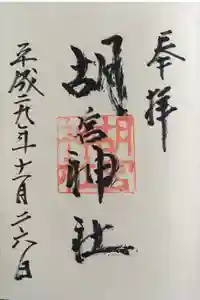 奉拝
胡宮神社
平成二九年十一月二六日